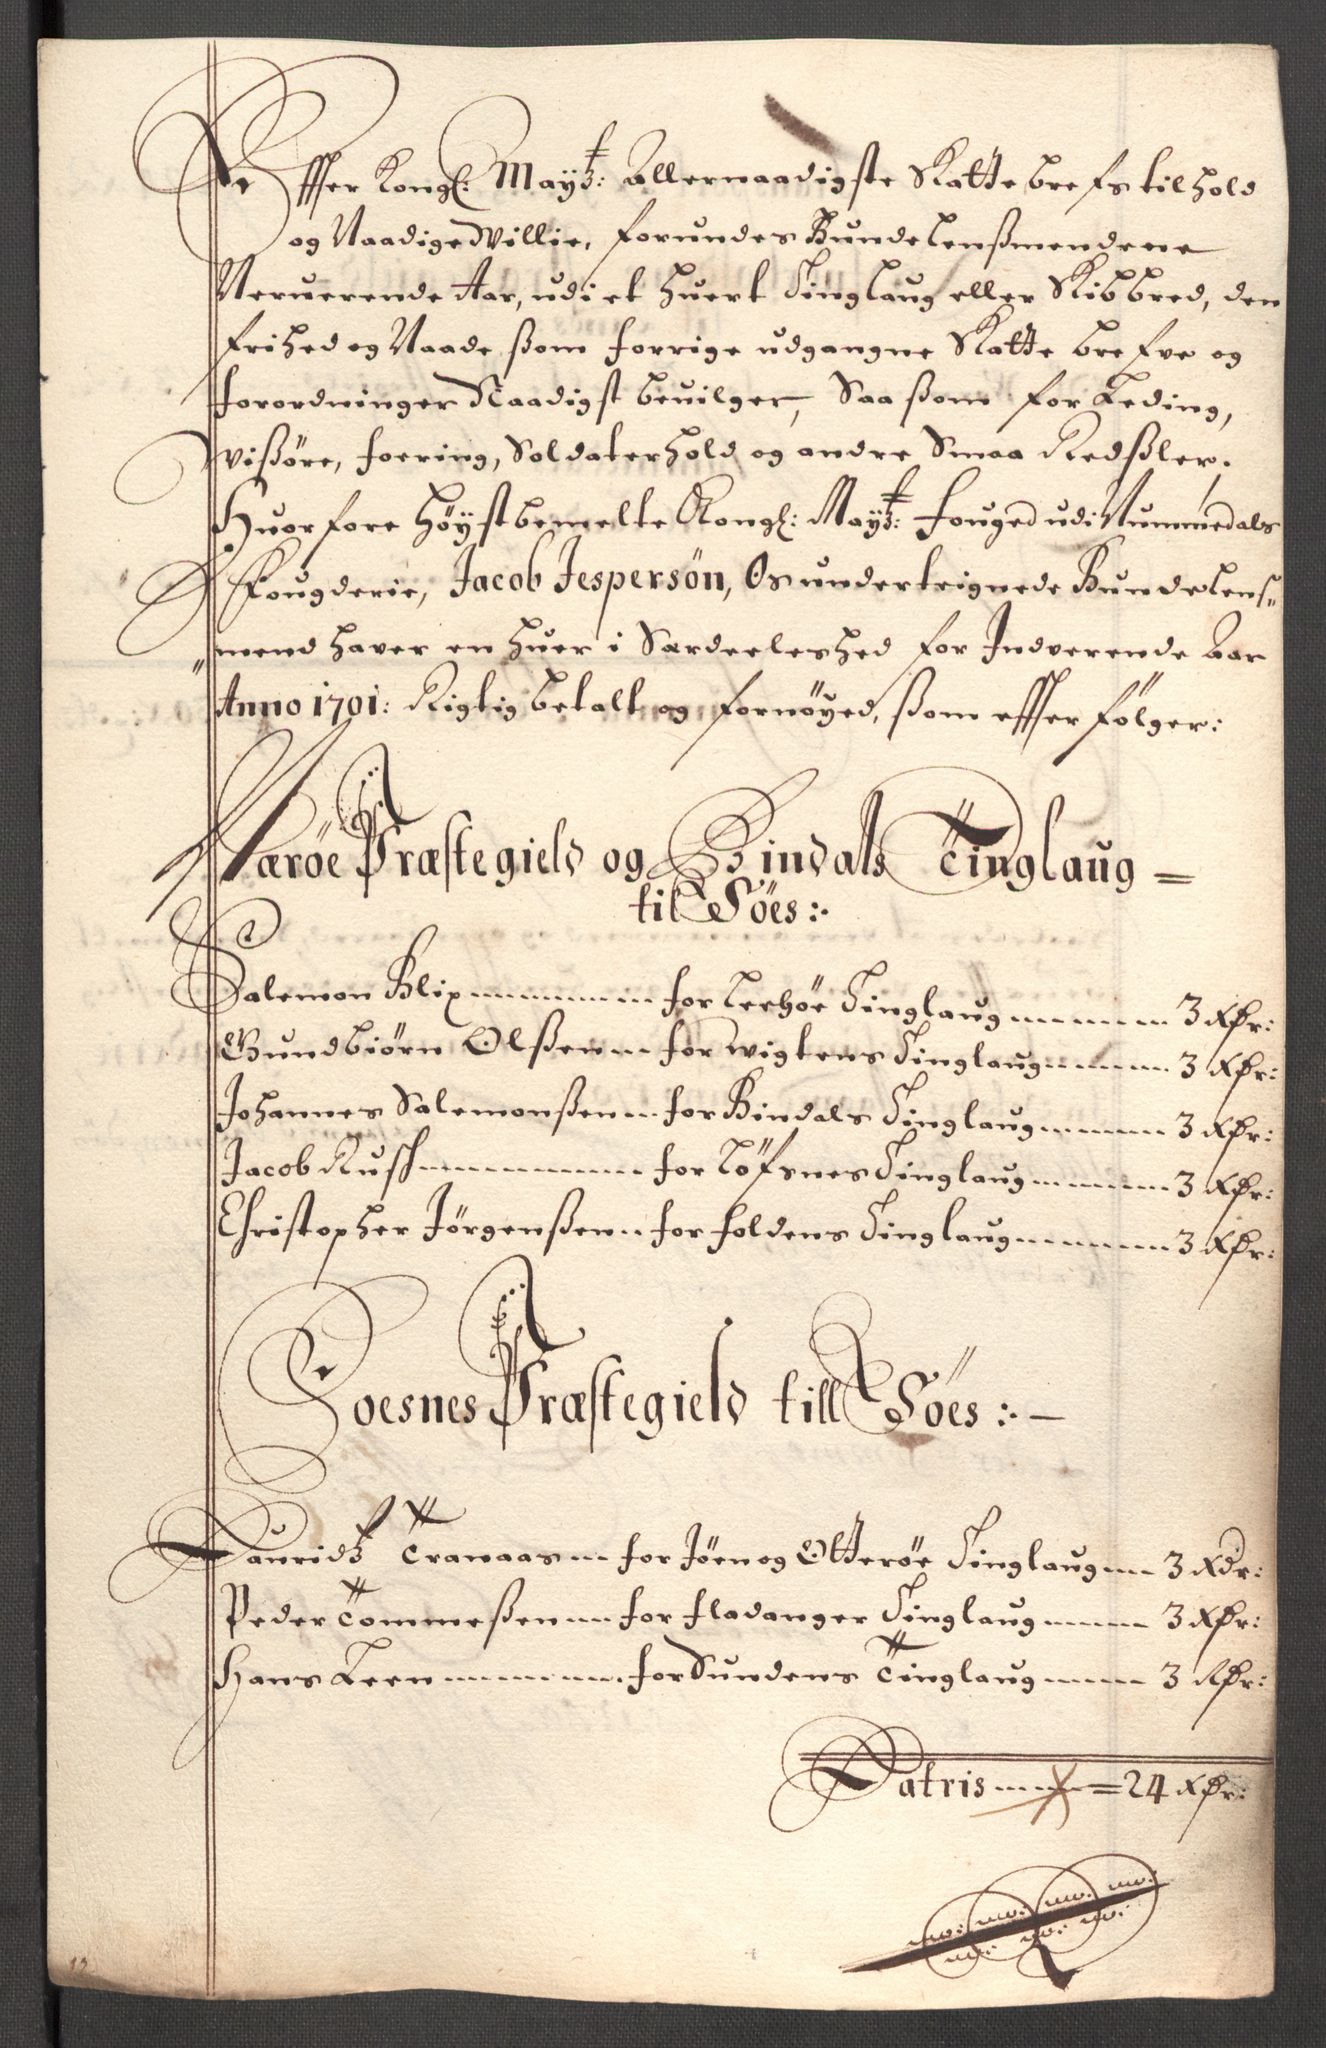 Effter Kongl: Maytz: Allernaadigste Skatte brefs tilhold
og Naadige Willie, forundes Bunde Lensmendene
Neruerende Aar, udi et huert Tinglaug eller Skibbred, den
frihed og Naade ßom forrige udgangne Skatte brefve og
forordninger Naadigst beuilger, Saa ßom for Leding,
Wißøre, foering, Soldaterhold og andre Smaa Redßler.
Huorfore høystbemelte Kongl: Maytz: fouged udi Nummedals
Fougderie, Jacob Jespersøn, Os underteignede Bundelens-
mend haver en huer i Særdeeleshed for Indverende Aar
Anno 1701: Rigtig betalt og fornøyed, ßom effter følger:
Nærøe Præstegield og Bindals Tinglaug =
til Søes:
Salemon Blix for Leehøe Tinglaug 3 Rdr:
Gundbiørn Olßen for Wigtens Tinglaug 3 Rdr:
Johannes Salemonßen for Bindals Tinglaug 3 Rdr:
Jacob Rusch for Løfsnes Tinglaug 3 Rdr:
Christopher Jørgenßen for foldens Tinglaug 3 Rdr:
Foesnes Præstegield till Søes: -
Lauridtz Tranaas for Jøen og Otterøe Tinglaug 3 Rdr:
Peder Tommeßen for fladanger Tinglaug 3 Rdr:
Hans Leen for Sundens Tinglaug 3 Rdr:
Latris = 24 Rdr:
13